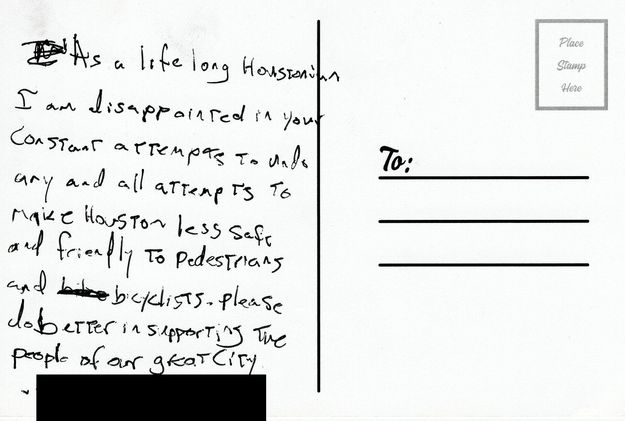 As a life long Houstonian
I am disappointed in your
constant attempts to undo
any and all attempts to
make Houston less safe
and friendly to Pedestrians
and bicyclists. Please
do better in supporting the
people of our great City
Place
Stamp
Here
To: